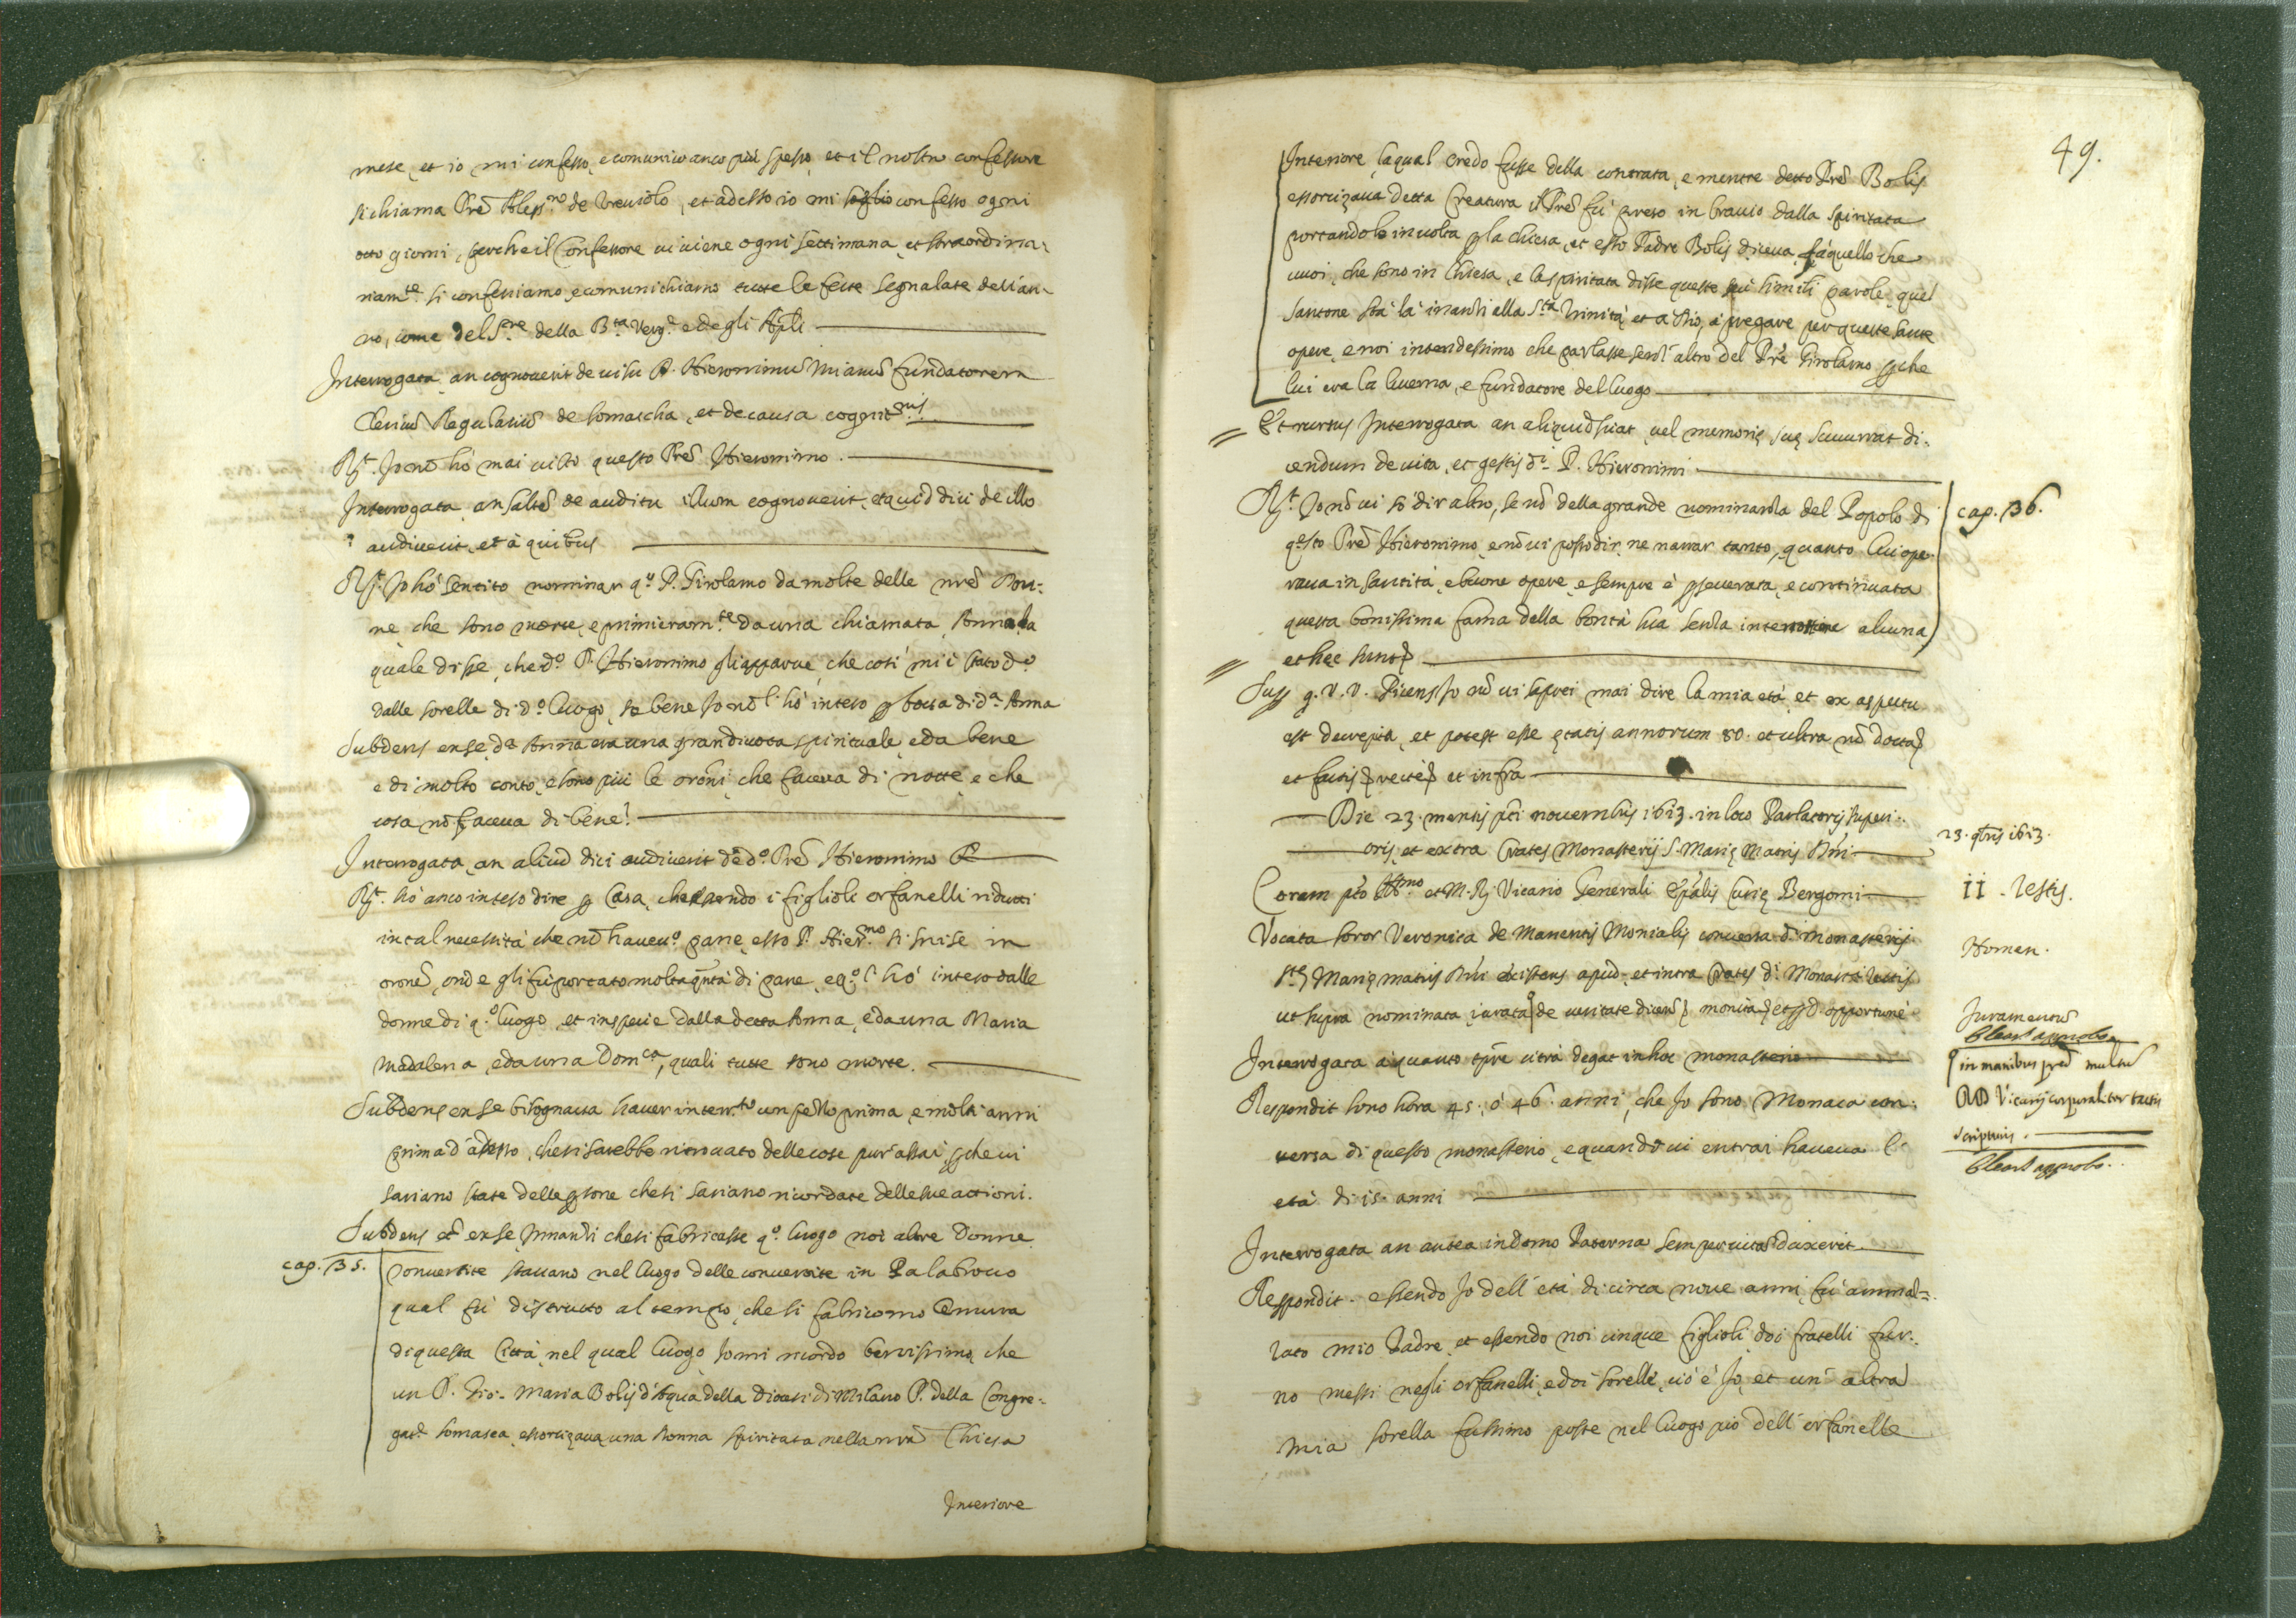 mese, et io mi confesso, e comunico anco più spesso, et il nostro confessore
si chiama Prē Aless.ro de Treviolo, et adesso io mi soglio confesso ogni
otto giorni, perche il Confessore ui uiene ogni settimana, et straordina-
riam.te si confessiamo, e comunichiamo tutte le feste segnalate dell'an-
no, come del S.re della B.ta Verg.e e degli Apli
Interrogata an cognouerit de uisu P. Hieronimū Mianū fundatorem
Clericū Regulariū de Somascha, et de causa cognit.nis
Rt. Io nō hò mai uisto questo Prē Hieronimo.
Interrogata an saltē de auditu illum cognouerit, et quid dici de illo
audiuerit, et à quibus
Rt. Io hò sentito nominar q.o P. Girolamo da molte delle nrē Don-
ne, che sono morte, e primieram.te da una chiamata Anna la
quale disse, che d.o P. Hieronimo gli apparue, che così mi è stato d.o
dalle sorelle di d.o luogo, se bene Io nō l'hò inteso p bocca di d.a Anna
Subdens ex se, d.a Anna era una gran diuota spirituale, e da bene
e di molto conto, e sono più le oroni, che faceua di notte, e che
cosa nō faceua di bene?
Interrogata, an aliud dici audiuerit de d.o Prē Hieronimo
Rt. hò anco inteso dire p Casa, che essendo i figlioli orfanelli ridutti
in tal necessità che nō haueu.o pane, esso P. Hier.mo si mise in
oronē, onde gli fu portato molta q.ntà di pane, e q.o l'hò inteso dalle
donne di q.o luogo, et in specie dalla detta Anna, e da una Maria
Madalena, e da una Dom.ca, quali tutte sono morte.
Subdens ex se bisognaua hauer inter.to un pezzo prima, e molti anni
prima d'adesso, che si sarebbe ritrouato delle cose pur assai, pche ui
sariano state delle psone che si sariano ricordate delle sue attioni.
Subdens et ex se, Innanzi che si fabricasse q.o luogo noi altre Donne
cap. 35.
conuertite stauano nel luogo delle conuertite in Palabrocco
qual fù distrutto al tempo, che si fabricorno le mura
di questa Città, nel qual luogo, Io mi ricordo benissimo, che
un P. Gio: Maria Bolis d'Aqua della diocesi di Milano P. della Congre-
gat.e Somasca, essorcizaua una Donna spiritata nella nrā Chiesa
Interiore
49.
Interiore, laqual credo fusse della contrata, e mentre detto Prē Bolis
essorcizaua detta Creatura il Prē fù preso in bracio dalla spiritata
portandolo in uolta p la chiesa, et esso Padre Bolis diceua, fà quello che
uuoi, che sono in Chiesa, e la spiritata disse queste simili parole, quel
Santone stà là inanzi alla S.ta Trinità, et a Dio, à pregare per queste sante
opere, e noi intendessimo che parlasse senz'altro del Prē Girolamo pche
lui era la lucerna, e fundatore del luogo
Et rursus Interrogata an aliquid sciat, uel memorię suę succurrat di-
cendum de uita, et gestis d.i P. Hieronimi
cap. 36.
Rt. Io nō ui sò dir altro, se nō della grande nominanza del Popolo di
q.esto Prē Hieronimo, e nō ui posso dir, ne narrar tanto, quanto lui ope-
raua in santità, e buone opere, e sempre è pseuerata, e continuata
questa bonissima fama della bontà sua senza intermissione alcuna
et hęc
Sup g. r. r. dicens Io nō ui saprei mai dire la mia età, et ex aspectu
est decrepita, et potest esse ętatis annorum 80. et ultra nō docta
et factis recte et infra
Die 23. mensis pti nouembris 1613. in loco Parlatorij superi-
oris, et extra Crates Monasterij S. Marię Matris Dñi
23. 9bris 1613.
Coram pto Ill.mo et M. R. Vicario Generali Ep̄alis Curię Bergomi
11. Testis.
Vocata soror Veronica de Manentis Monialis conuersa d.i monasterij
Nomen.
S.tę Marię matris Dñi existens apud, et intra Crates d.i Monast.ij testis
ut supra nominata, iurata de ueritate dicend monita et opportunè
Juramentū
in manibus pred. multū
RD Vicarij corporaliter tactis
scripturis.
Interrogata à quanto tpre citra degat in hoc monasterio
Respondit sono hora 45. ò 46. anni, che Io sono Monaca con-
uersa di questo monasterio, e quando ui entrai haueua l'
età di 15. anni
Interrogata an antea in domo Paterna semper uitā duxerit
Respondit. essendo Io dell'età di circa noue anni, fù amma-
lato mio Padre, et essendo noi cinque figlioli, doi fratelli fur-
no messi negli orfanelli, e doi sorelle, cio è Io, et un'altra
mia sorella fussimo poste nel luogo pio dell'orfanelle